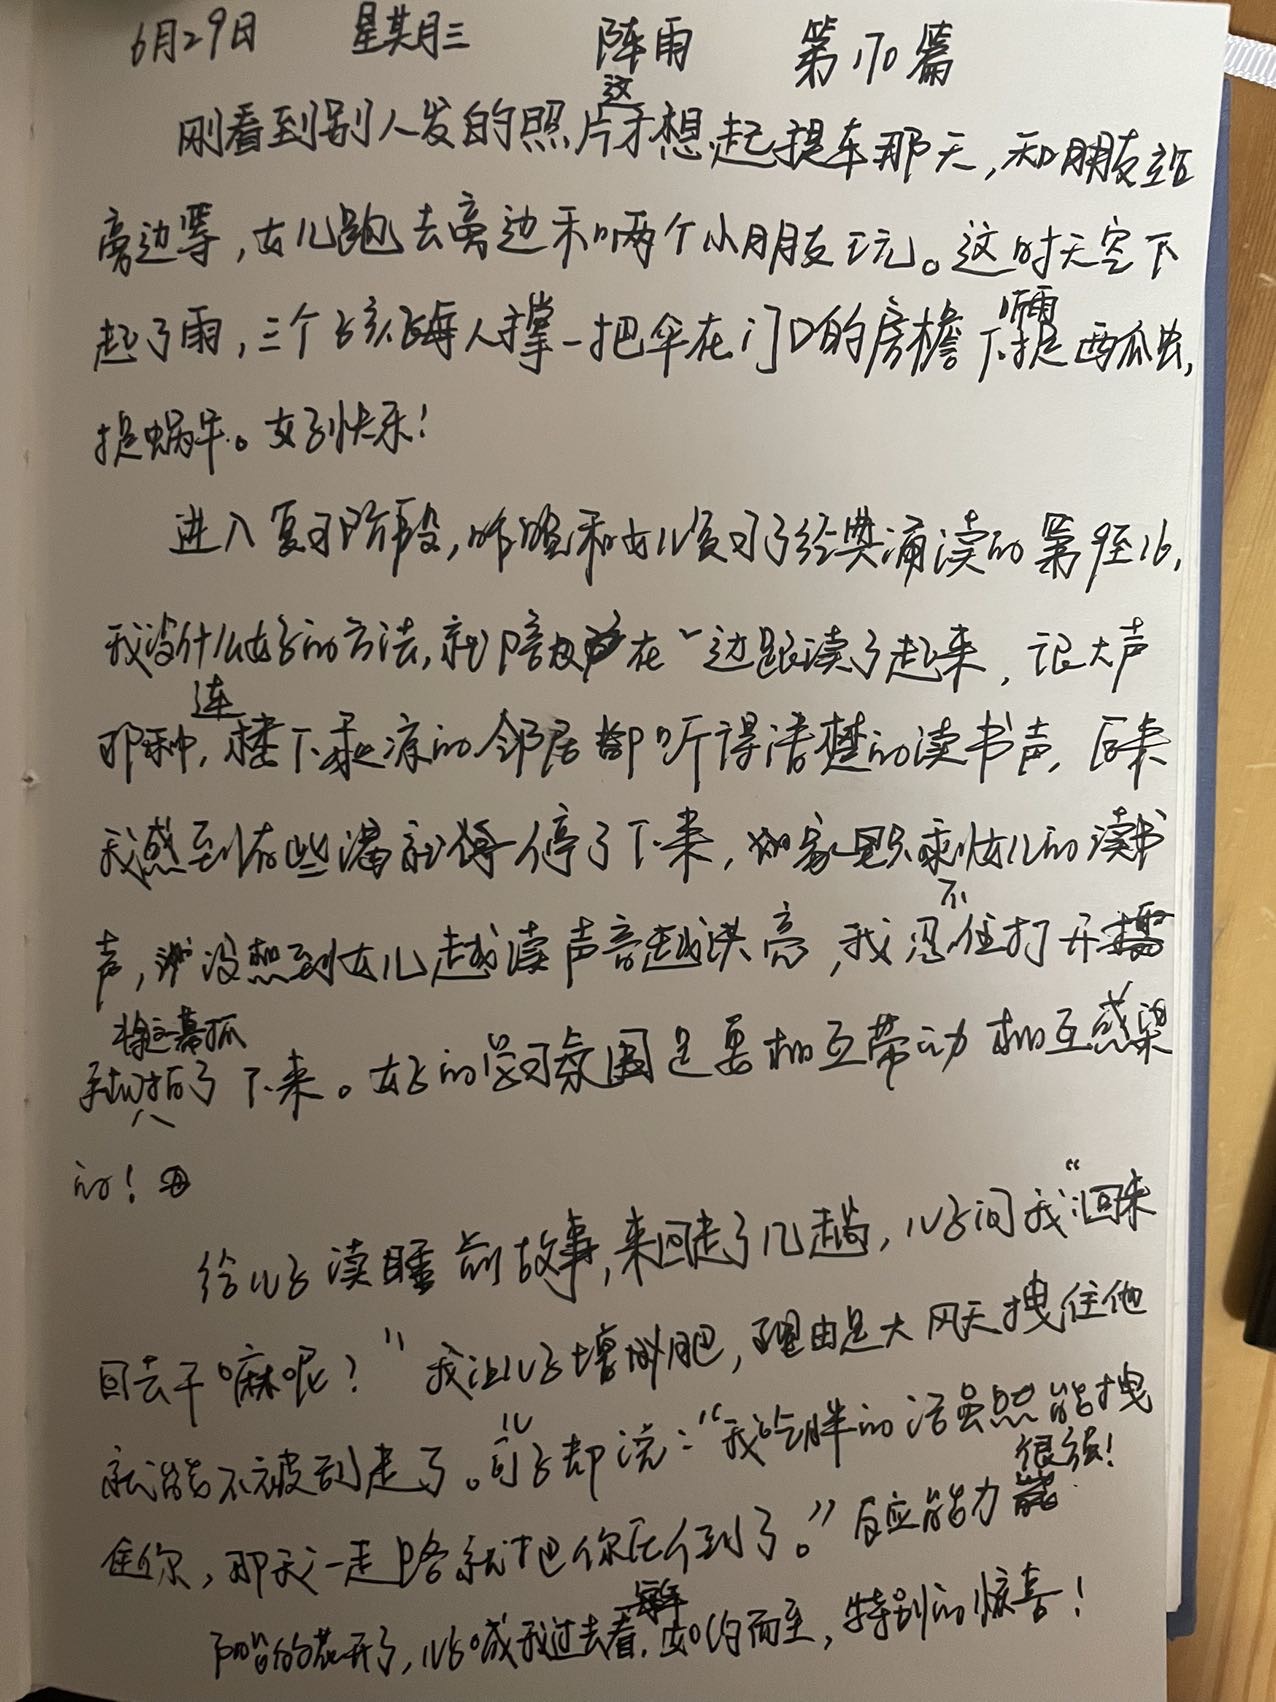 6月29日 星期三 阵雨 第170篇
刚看到别人发的照片这才想起提车那天,和朋友站
旁边等,女儿跑去旁边和两个小朋友玩。这时天空下
起了雨,三个孩每人撑一把伞在门口的房檐下捉西瓜虫,
捉蜗牛。好快乐!
进入复习阶段,昨晚和女儿复习了经典诵读的第9至16,
我没什么好的方法,就陪在一边跟读了起来,很大声
那种,连楼下乘凉的邻居都听得清楚的读书声,后来
我感到有些渴就停了下来,只剩女儿的读书
声,没想到女儿越读声音越洪亮,我忍不住打开
手机将这幕抓拍了下来。好的学习氛围是要相互带动相互感染
的!
给儿子读睡前故事,来回走了几趟,儿子问我“回来
回去干嘛呢?”我让儿子增肥,理由是大风天拽住他
就能不被刮走了。儿子却说:“我吃胖的话虽然能拽
住你,那我一走路就把你压倒了。”反应能力很强!
阳台的花开了,儿子喊我过去看,如约而至,特别的惊喜!